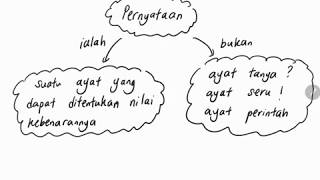 Pernyataan
ialah
bukan
suatu ayat yang
dapat ditentukan nilai
kebenarannya
ayat tanya ?
ayat seru !
ayat perintah